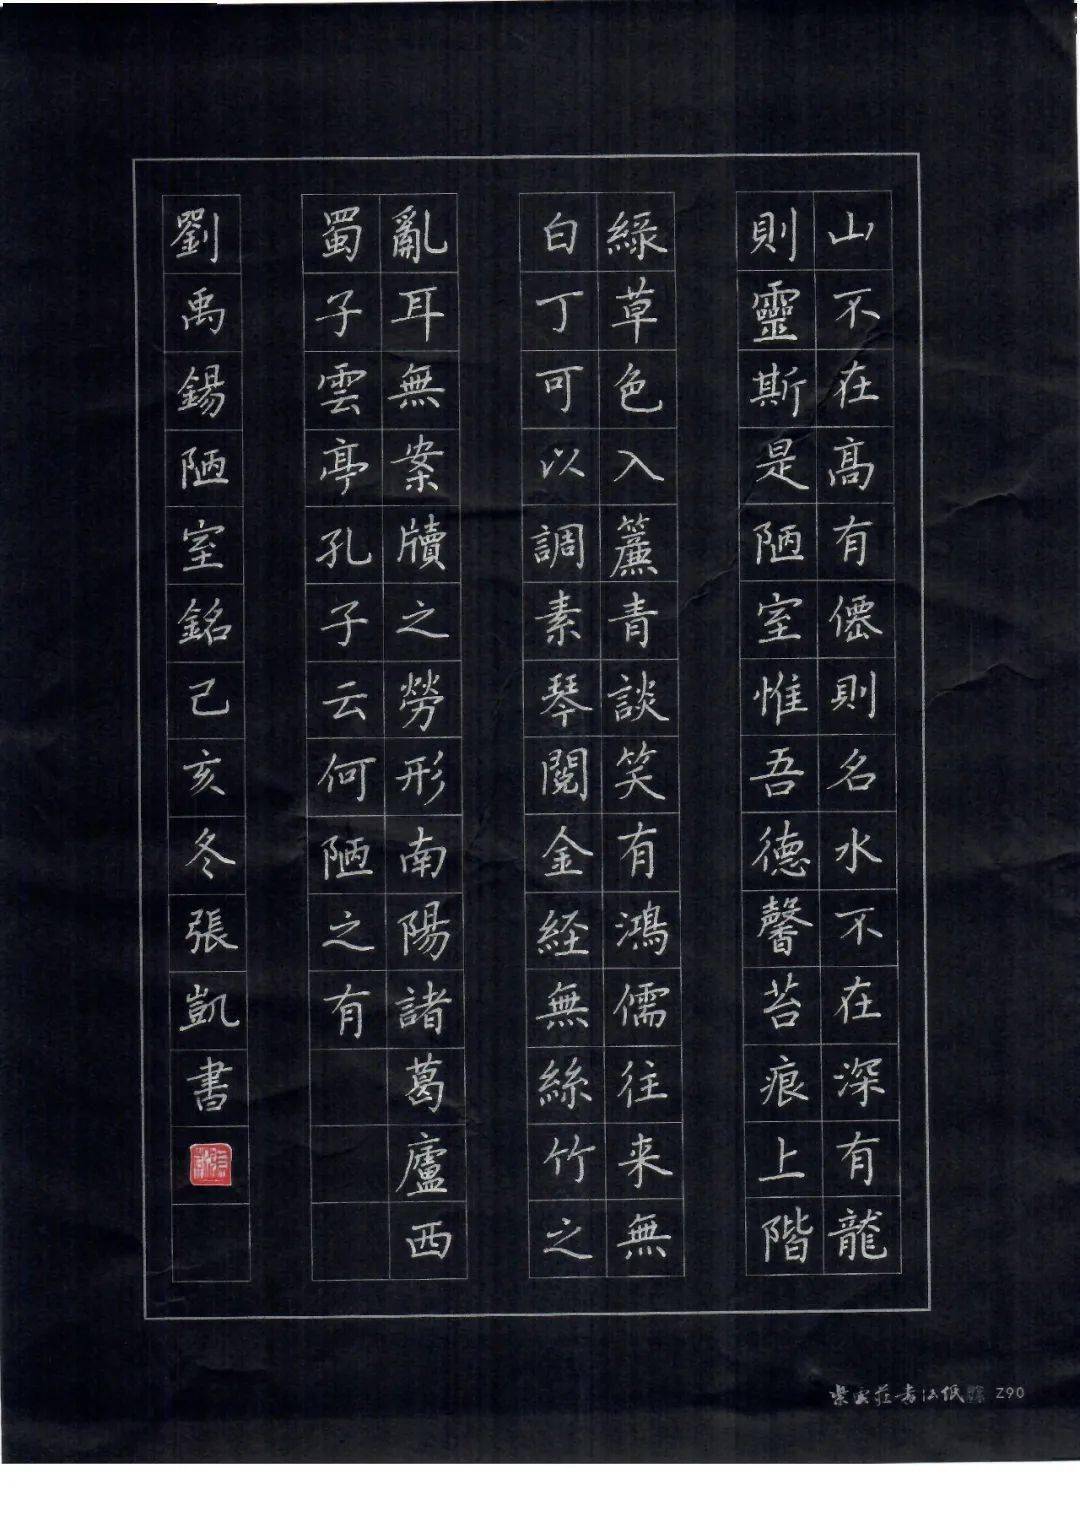 山不在高有僊則名水不在深有龍
則靈斯是陋室惟吾德馨苔痕上階
綠草色入簾青談笑有鴻儒往来無
白丁可以調素琴閱金経無絲竹之
亂耳無案牘之勞形南陽諸葛廬西
蜀子雲亭孔子云何陋之有
劉禹錫陋室銘己亥冬張凱書
紫雲莊書法紙 Z90